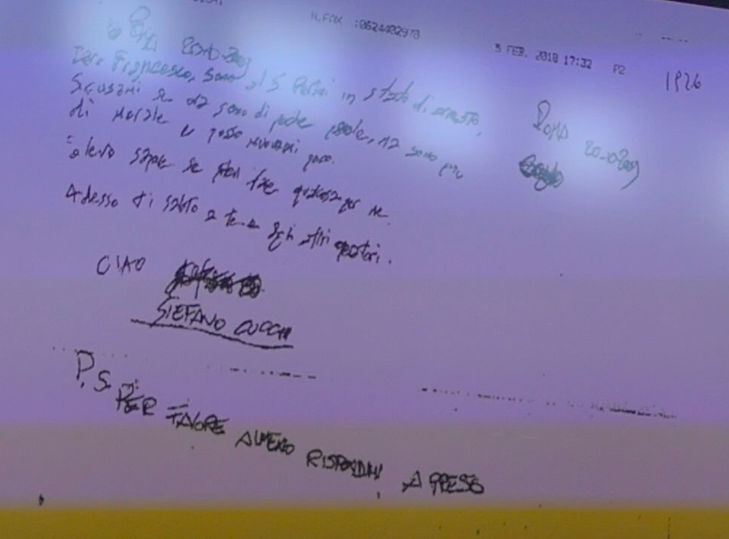 N.FAX :0624402978 5 FEB. 2010 17:32 P2 1926
ROMA 20-10-2009
Caro Francesco, sono al S. Pertini in stato di arresto,
Scusami se ma sono di poche parole, ma sono giù
di morale e posso muovermi poco.
Volevo sapere se potevi fare qualcosa per me.
Adesso ti saluto a te e agli altri operatori.
ROMA 20-10-2009
CIAO
STEFANO CUCCHI
P.S. PER FAVORE ALMENO RISPONDIMI A PRESTO